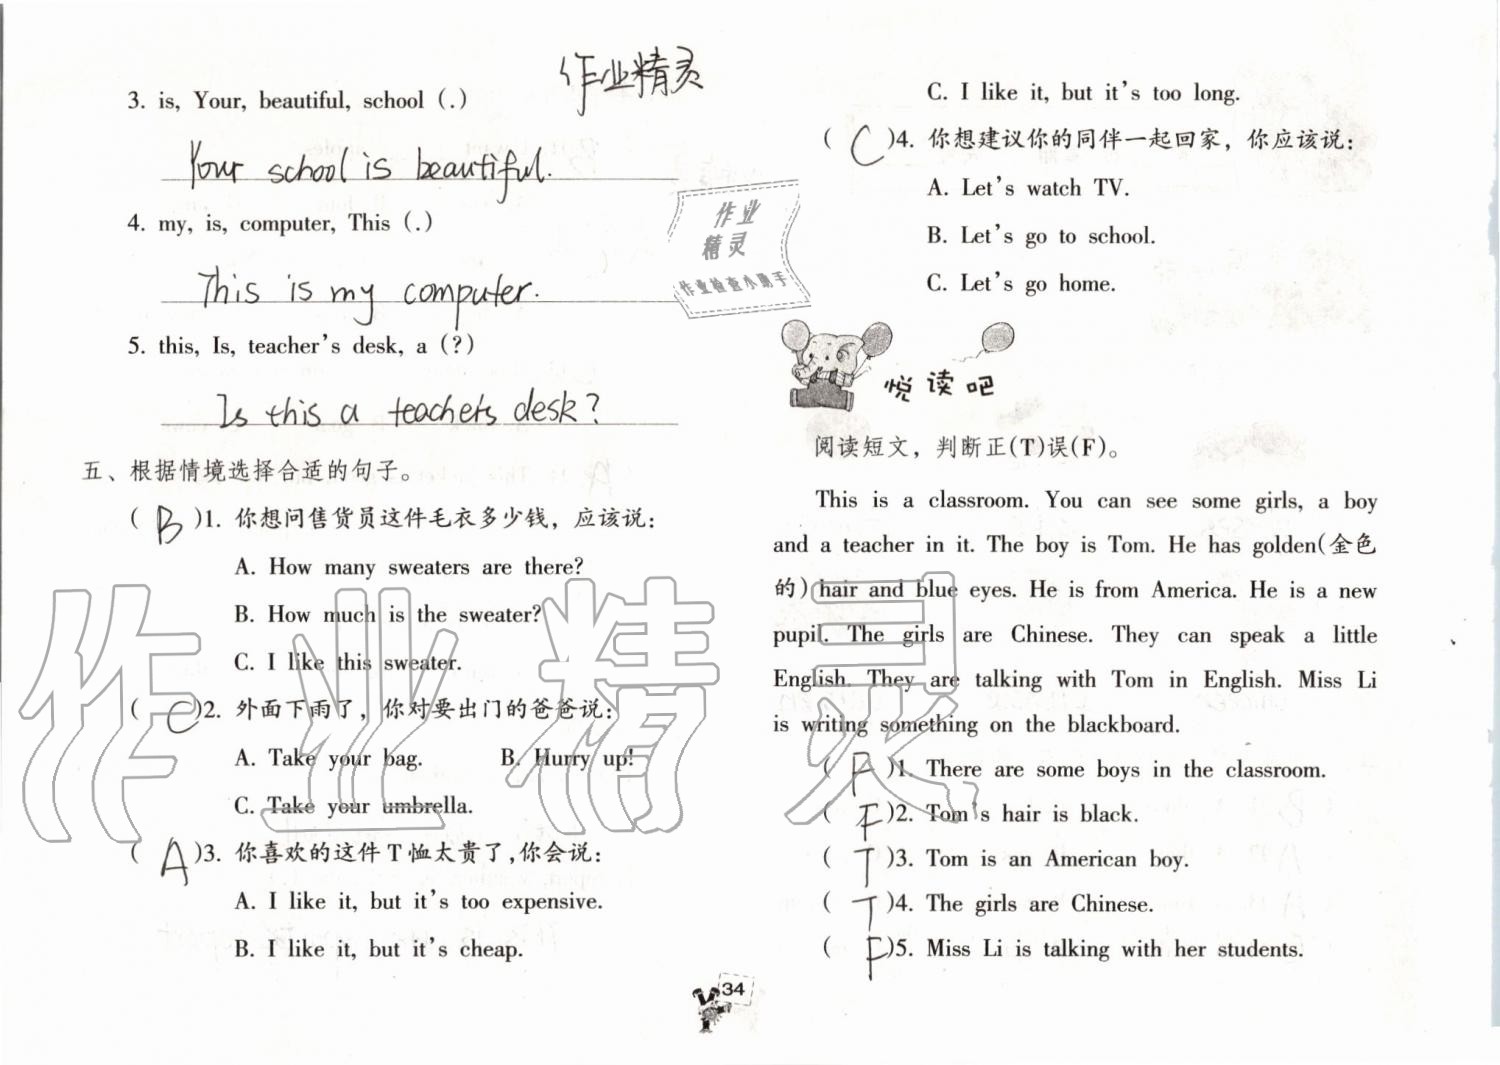 作业精灵
3. is, Your, beautiful, school (.)
Your school is beautiful.
4. my, is, computer, This (.)
This is my computer.
5. this, Is, teacher's desk, a (?)
Is this a teacher's desk?
五、根据情境选择合适的句子。
( B )1. 你想问售货员这件毛衣多少钱，应该说：
A. How many sweaters are there?
B. How much is the sweater?
C. I like this sweater.
( C )2. 外面下雨了，你对要出门的爸爸说：
A. Take your bag. B. Hurry up!
C. Take your umbrella.
( A )3. 你喜欢的这件T恤太贵了，你会说：
A. I like it, but it's too expensive.
B. I like it, but it's cheap.
作业
精灵
作业检查小助手
C. I like it, but it's too long.
( C )4. 你想建议你的同伴一起回家，你应该说：
A. Let's watch TV.
B. Let's go to school.
C. Let's go home.
悦读吧
阅读短文，判断正(T)误(F)。
This is a classroom. You can see some girls, a boy
and a teacher in it. The boy is Tom. He has golden(金色
的) hair and blue eyes. He is from America. He is a new
pupil. The girls are Chinese. They can speak a little
English. They are talking with Tom in English. Miss Li
is writing something on the blackboard.
( F )1. There are some boys in the classroom.
( F )2. Tom's hair is black.
( T )3. Tom is an American boy.
( T )4. The girls are Chinese.
( F )5. Miss Li is talking with her students.
34
作业精灵